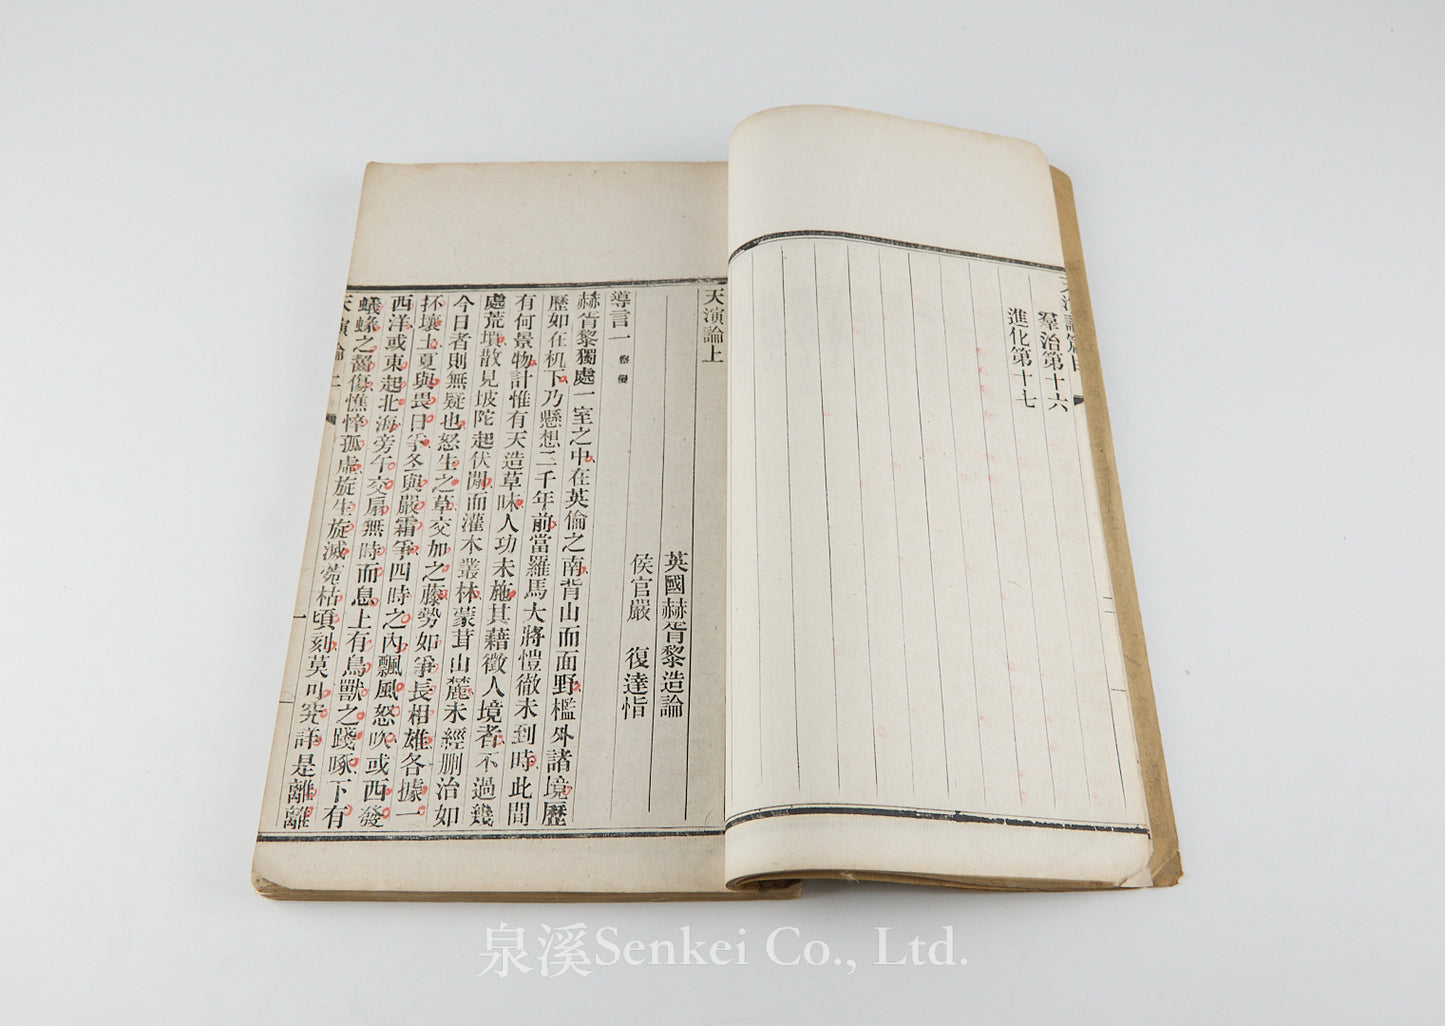 天演論篇目
羣治第十六
進化第十七
天演論上
英國赫胥黎造論
侯官嚴 復達恉
導言一 察變
赫胥黎獨處一室之中在英倫之南背山而面野檻外諸境歷
歷如在机下乃懸想二千年前當羅馬大將愷徹未到時此間
有何景物計惟有天造草昧人功未施其藉徵人境者不過幾
處荒墳散見坡陀起伏閒而灌木叢林蒙茸山麓未經刪治如
今日者則無疑也怒生之草交加之藤勢如爭長相雄各據一
抔壤土夏與畏日爭冬與嚴霜爭四時之內飄風怒吹或西發
西洋或東起北海旁午交扇無時而息上有鳥獸之踐啄下有
蟻蝝之齧傷憔悴孤虛旋生旋滅菀枯頃刻莫可究詳是離離
天演論上 一
泉溪Senkei Co., Ltd.